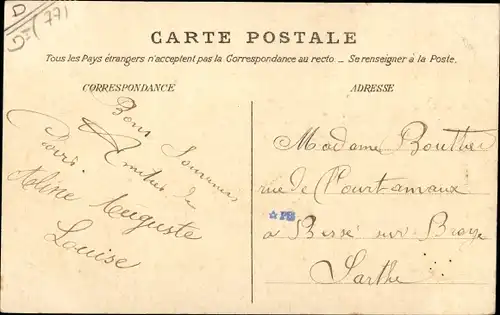 D
771
CARTE POSTALE
Tous les Pays étrangers n'acceptent pas la Correspondance au recto _ Se renseigner à la Poste.
CORRESPONDANCE
ADRESSE
Bons Souvenirs
Amitiés de
Aline Auguste
Louise
Madame
rue de Courtamaux
☆ PB
a Bessé sur Braye
Sarthe